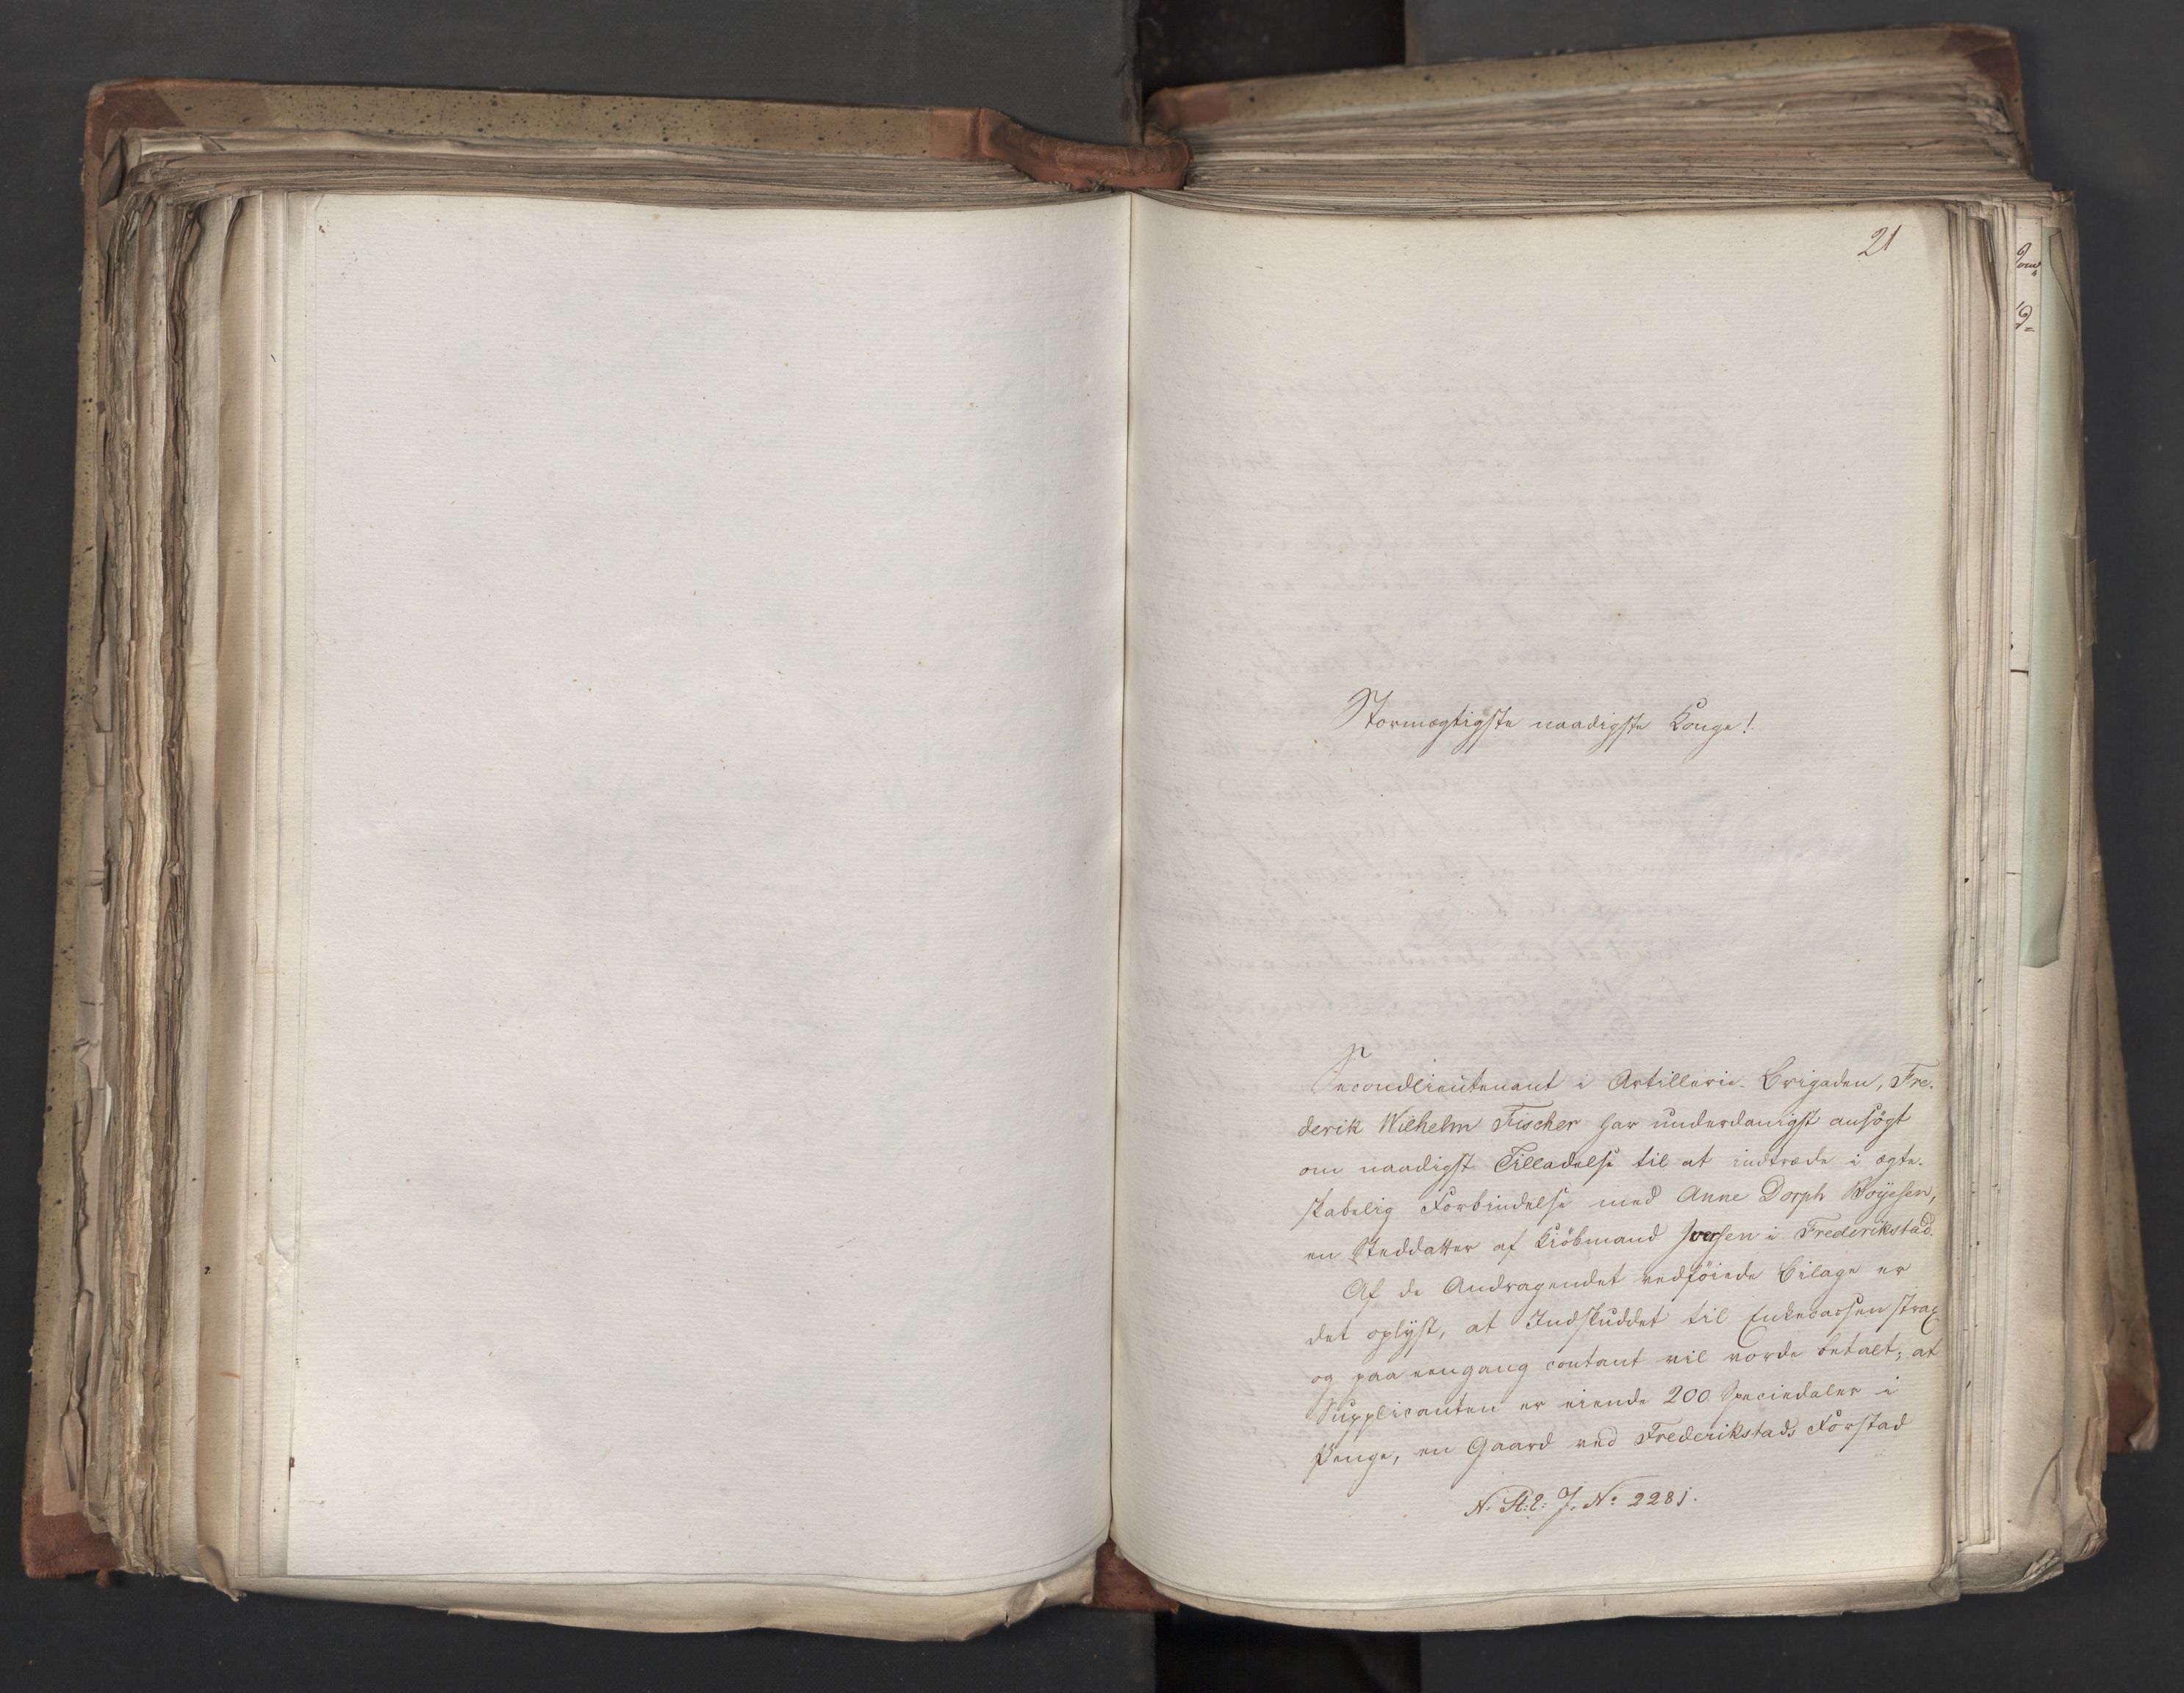 21
Stormægtigste naadigste Konge!
Secondlieutenant i Artillerie-Brigaden, Fre-
derik Wilhelm Fischer har underdanigst ansögt
om naadigst Tilladelse til at indtræde i ægte-
skabelig Forbindelse med Anne Dorph Boyesen,
en Steddatter af Kiöbmand Iversen i Frederikstad.
Af de Andragendet vedföiede Bilage er
det oplyst, at Indskuddet til Enkecassen strax
og paa eengang contant vil vorde betalt; at
Supplicanten er eiende 200 Speciedaler i
Penge, en Gaard ved Frederikstads Forstad
N. St: S: J. No 2281.